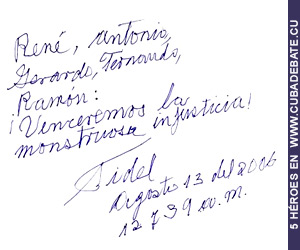 René, Antonio,
Gerardo, Fernando,
Ramón:
¡Venceremos la
monstruosa injusticia!
Fidel
Agosto 13 del 2006
12 y 39 a.m.
5 HÉROES EN WWW.CUBADEBATE.CU